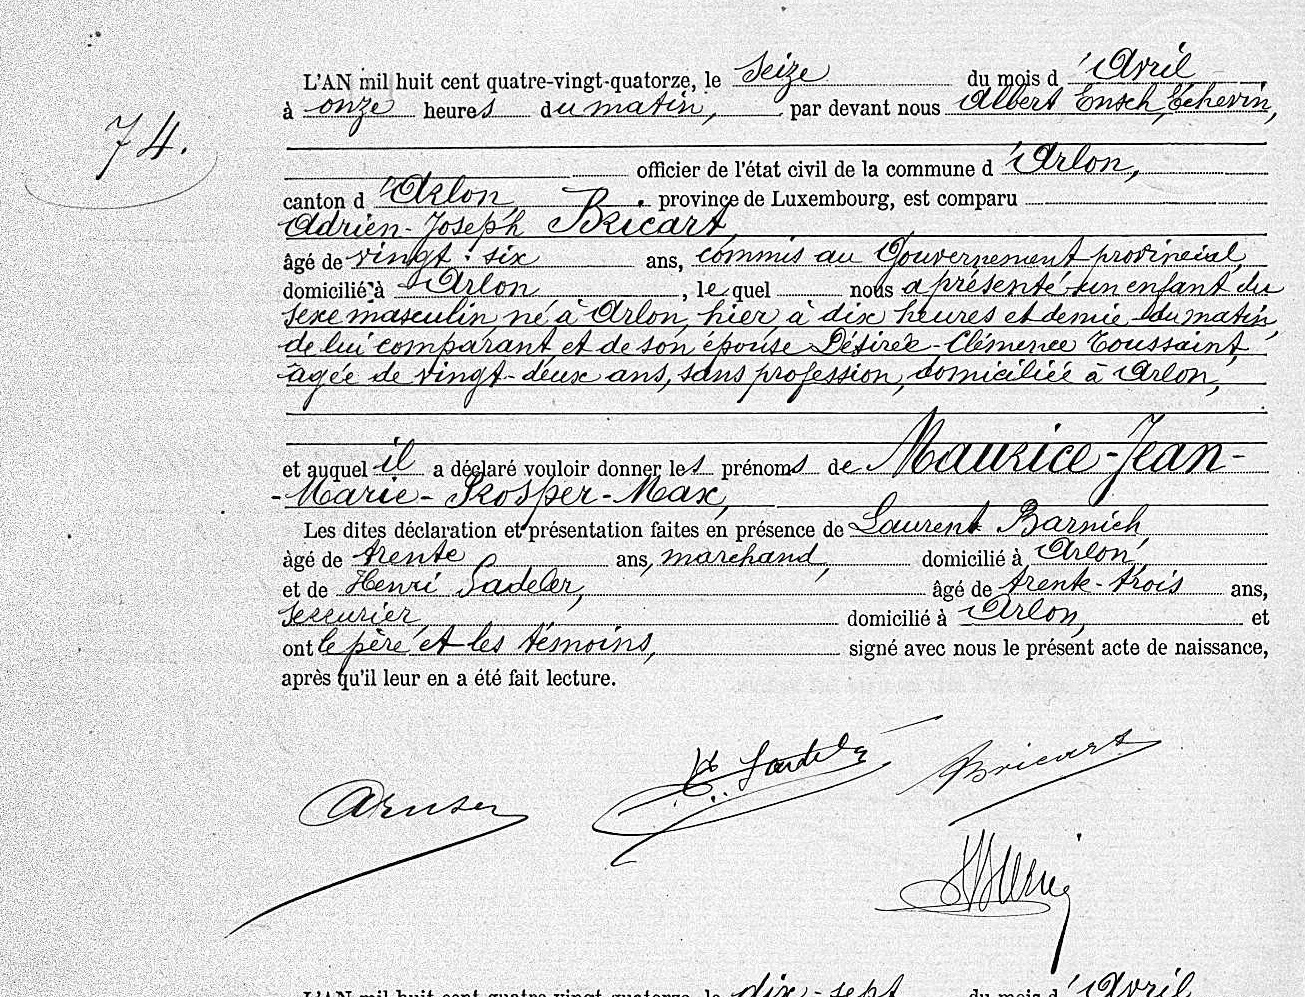 L'AN mil huit cent quatre-vingt-quatorze, le seize du mois d'Avril
à onze heures du matin, par devant nous Albert Ensch, Échevin,
74.
officier de l'état civil de la commune d'Arlon,
canton d'Arlon, province de Luxembourg, est comparu
Adrien-Joseph Bricart,
âgé de vingt-six ans, commis au Gouvernement provincial,
domicilié à Arlon, lequel nous a présenté un enfant du
sexe masculin, né à Arlon, hier, à dix heures et demie du matin,
de lui comparant et de son épouse Désirée-Clémence Toussaint,
âgée de vingt-deux ans, sans profession, domiciliée à Arlon,
et auquel il a déclaré vouloir donner les prénoms de Maurice-Jean-
-Marie-Prosper-Max,
Les dites déclaration et présentation faites en présence de Laurent Barnich
âgé de trente ans, marchand, domicilié à Arlon,
et de Henri Sadeler, âgé de trente-trois ans,
serrurier domicilié à Arlon, et
ont le père et les témoins, signé avec nous le présent acte de naissance,
après qu'il leur en a été fait lecture.
Bricart
L'AN mil huit cent quatre-vingt-quatorze, le dix-sept du mois d'Avril